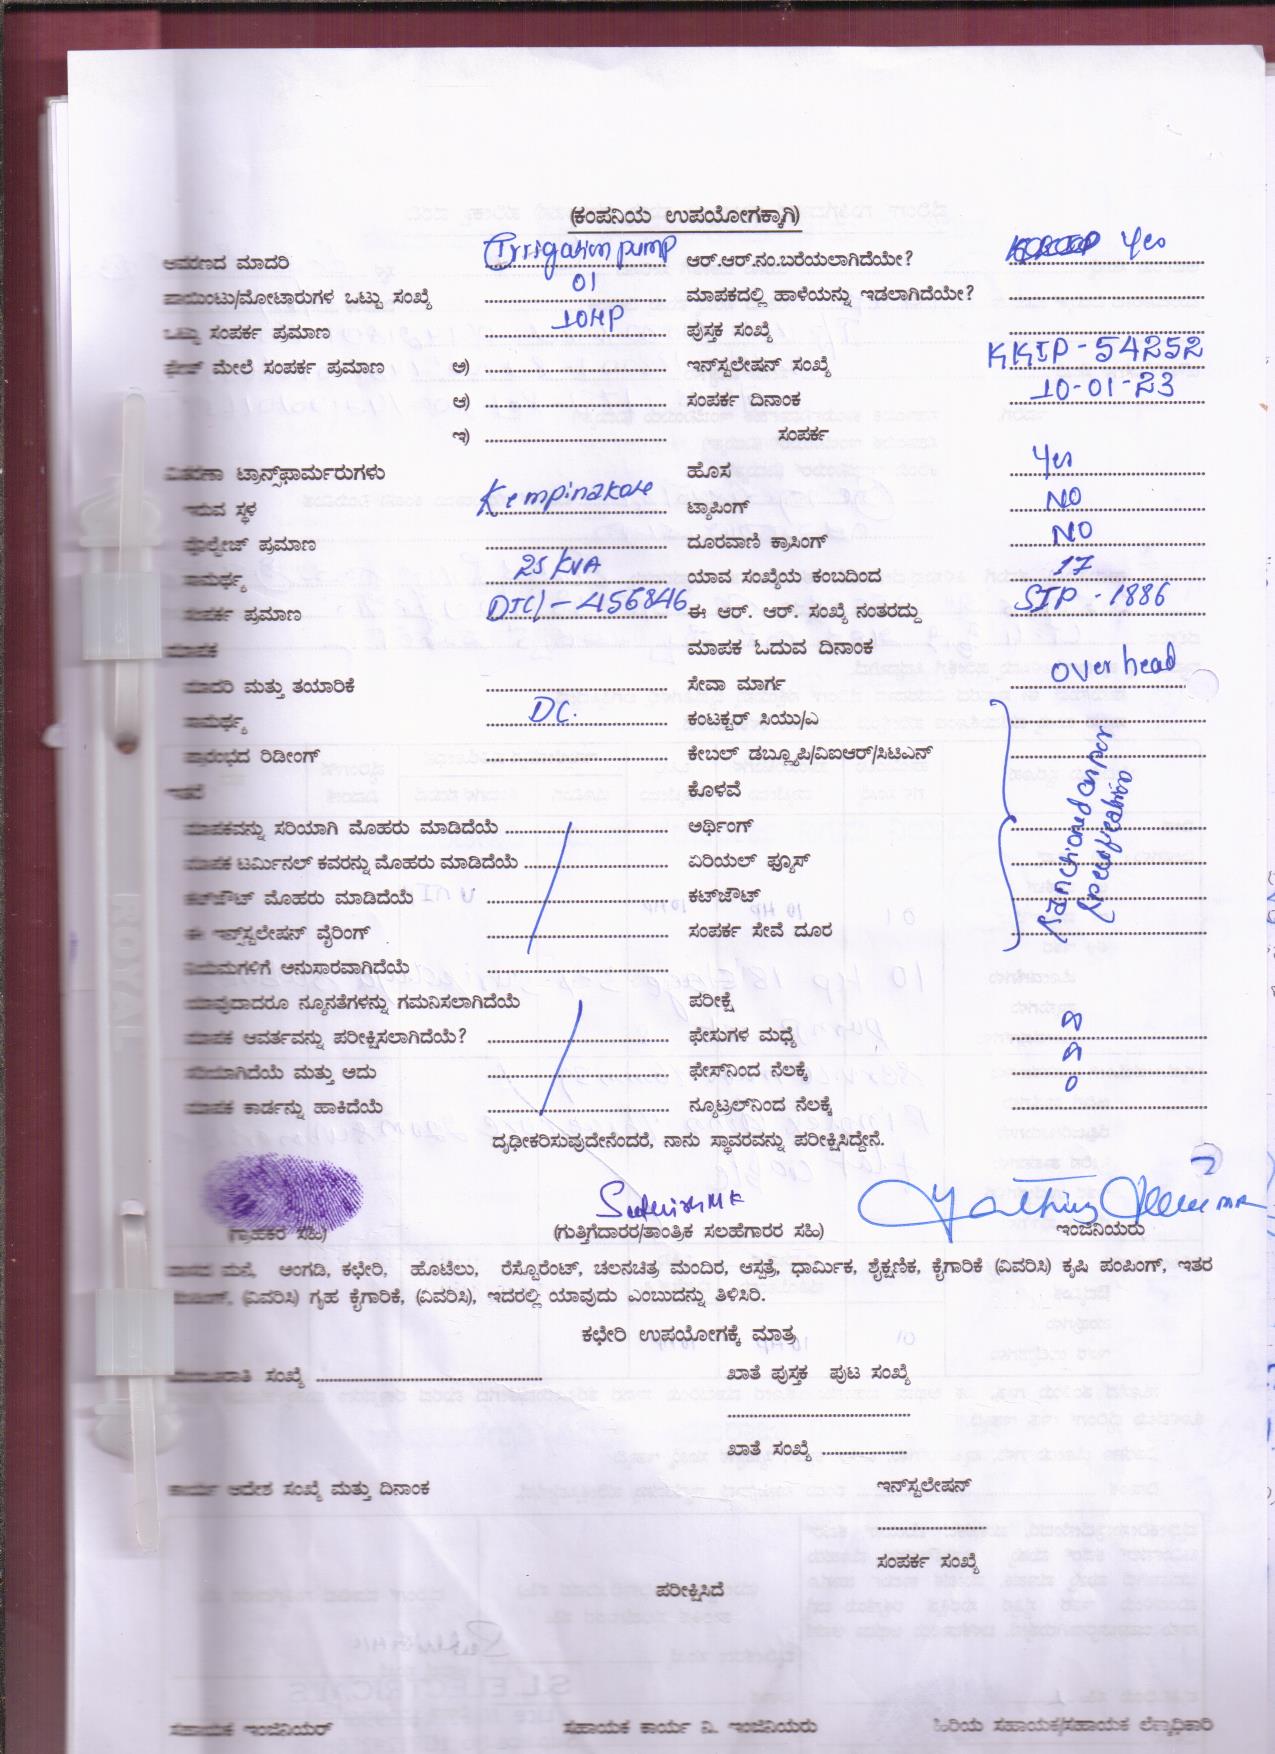 (ಕಂಪನಿಯ ಉಪಯೋಗಕ್ಕಾಗಿ)
ಆವರಣದ ಮಾದರಿ Irrigation pump ಆರ್.ಆರ್.ನಂ.ಬರೆಯಲಾಗಿದೆಯೇ? Yes
ಪಾಯಿಂಟು/ಮೋಟಾರುಗಳ ಒಟ್ಟು ಸಂಖ್ಯೆ 01 ಮಾಪಕದಲ್ಲಿ ಹಾಳೆಯನ್ನು ಇಡಲಾಗಿದೆಯೇ?
ಒಟ್ಟು ಸಂಪರ್ಕ ಪ್ರಮಾಣ 10HP ಪುಸ್ತಕ ಸಂಖ್ಯೆ
ಫೇಸ್ ಮೇಲೆ ಸಂಪರ್ಕ ಪ್ರಮಾಣ ಅ) ಇನ್‌ಸ್ಟಲೇಷನ್ ಸಂಖ್ಯೆ KKIP-54252
ಆ) ಸಂಪರ್ಕ ದಿನಾಂಕ 10-01-23
ಇ) ಸಂಪರ್ಕ
ವಿತರಣಾ ಟ್ರಾನ್ಸ್‌ಫಾರ್ಮರುಗಳು ಹೊಸ Yes
ಇರುವ ಸ್ಥಳ Kempinakote ಟ್ಯಾಪಿಂಗ್ NO
ವೋಲ್ಟೇಜ್ ಪ್ರಮಾಣ ದೂರವಾಣಿ ಕ್ರಾಸಿಂಗ್ NO
ಸಾಮರ್ಥ್ಯ 25 KVA ಯಾವ ಸಂಖ್ಯೆಯ ಕಂಬದಿಂದ 17
ಸಂಪರ್ಕ ಪ್ರಮಾಣ DTC/-456846 ಈ ಆರ್. ಆರ್. ಸಂಖ್ಯೆ ನಂತರದ್ದು SIP-1886
ಮಾಪಕ ಮಾಪಕ ಓದುವ ದಿನಾಂಕ
ಮಾದರಿ ಮತ್ತು ತಯಾರಿಕೆ ಸೇವಾ ಮಾರ್ಗ over head
ಸಾಮರ್ಥ್ಯ DC. ಕಂಟಕ್ಟರ್ ಸಿಯು/ಎ
ಪ್ರಾರಂಭದ ರಿಡೀಂಗ್ ಕೇಬಲ್ ಡಬ್ಲ್ಯೂಪಿ/ವಿಐಆರ್/ಸಿಟಿಎಸ್
ಇತರೆ ಕೊಳವೆ
ಮಾಪಕವನ್ನು ಸರಿಯಾಗಿ ಮೊಹರು ಮಾಡಿದೆಯೆ ಅರ್ಥಿಂಗ್
ಮಾಪಕ ಟರ್ಮಿನಲ್ ಕವರನ್ನು ಮೊಹರು ಮಾಡಿದೆಯೆ ಏರಿಯಲ್ ಫ್ಯೂಸ್
ಕಟ್‌ಔಟ್ ಮೊಹರು ಮಾಡಿದೆಯೆ ಕಟ್‌ಔಟ್
ಈ ಇನ್‌ಸ್ಟಲೇಷನ್ ವೈರಿಂಗ್ ಸಂಪರ್ಕ ಸೇವೆ ದೂರ
Sanctioned as per
ನಿಯಮಗಳಿಗೆ ಅನುಸಾರವಾಗಿದೆಯೆ
ಯಾವುದಾದರೂ ನ್ಯೂನತೆಗಳನ್ನು ಗಮನಿಸಲಾಗಿದೆಯೆ ಪರೀಕ್ಷೆ
ಮಾಪಕ ಆವರ್ತವನ್ನು ಪರೀಕ್ಷಿಸಲಾಗಿದೆಯೆ? ಫೇಸುಗಳ ಮಧ್ಯೆ
ಸರಿಯಾಗಿದೆಯೆ ಮತ್ತು ಅದು ಫೇಸ್‌ನಿಂದ ನೆಲಕ್ಕೆ
ಮಾಪಕ ಕಾರ್ಡನ್ನು ಹಾಕಿದೆಯೆ ನ್ಯೂಟ್ರಲ್‌ನಿಂದ ನೆಲಕ್ಕೆ 0
ದೃಢೀಕರಿಸುವುದೇನೆಂದರೆ, ನಾನು ಸ್ಥಾವರವನ್ನು ಪರೀಕ್ಷಿಸಿದ್ದೇನೆ.
(ಗ್ರಾಹಕರ ಸಹಿ) (ಗುತ್ತಿಗೆದಾರರ/ತಾಂತ್ರಿಕ ಸಲಹೆಗಾರರ ಸಹಿ) ಇಂಜಿನಿಯರು
ವಾಸದ ಮನೆ, ಅಂಗಡಿ, ಕಛೇರಿ, ಹೊಟೆಲು, ರೆಸ್ಟೊರೆಂಟ್, ಚಲನಚಿತ್ರ ಮಂದಿರ, ಆಸ್ಪತ್ರೆ, ಧಾರ್ಮಿಕ, ಶೈಕ್ಷಣಿಕ, ಕೈಗಾರಿಕೆ (ವಿವರಿಸಿ) ಕೃಷಿ ಪಂಪಿಂಗ್, ಇತರ
(ವಿವರಿಸಿ) ಗೃಹ ಕೈಗಾರಿಕೆ, (ವಿವರಿಸಿ), ಇದರಲ್ಲಿ ಯಾವುದು ಎಂಬುದನ್ನು ತಿಳಿಸಿರಿ.
ಕಛೇರಿ ಉಪಯೋಗಕ್ಕೆ ಮಾತ್ರ
ಮಂಜೂರಾತಿ ಸಂಖ್ಯೆ ಖಾತೆ ಪುಸ್ತಕ ಪುಟ ಸಂಖ್ಯೆ
ಖಾತೆ ಸಂಖ್ಯೆ
ಕಾರ್ಯ ಆದೇಶ ಸಂಖ್ಯೆ ಮತ್ತು ದಿನಾಂಕ ಇನ್‌ಸ್ಟಲೇಷನ್
ಸಂಪರ್ಕ ಸಂಖ್ಯೆ
ಪರೀಕ್ಷಿಸಿದೆ
ಸಹಾಯಕ ಇಂಜಿನಿಯರ್ ಸಹಾಯಕ ಕಾರ್ಯ ನಿ. ಇಂಜಿನಿಯರು ಹಿರಿಯ ಸಹಾಯಕ/ಸಹಾಯಕ ಲೆಕ್ಕಾಧಿಕಾರಿ
ROYAL